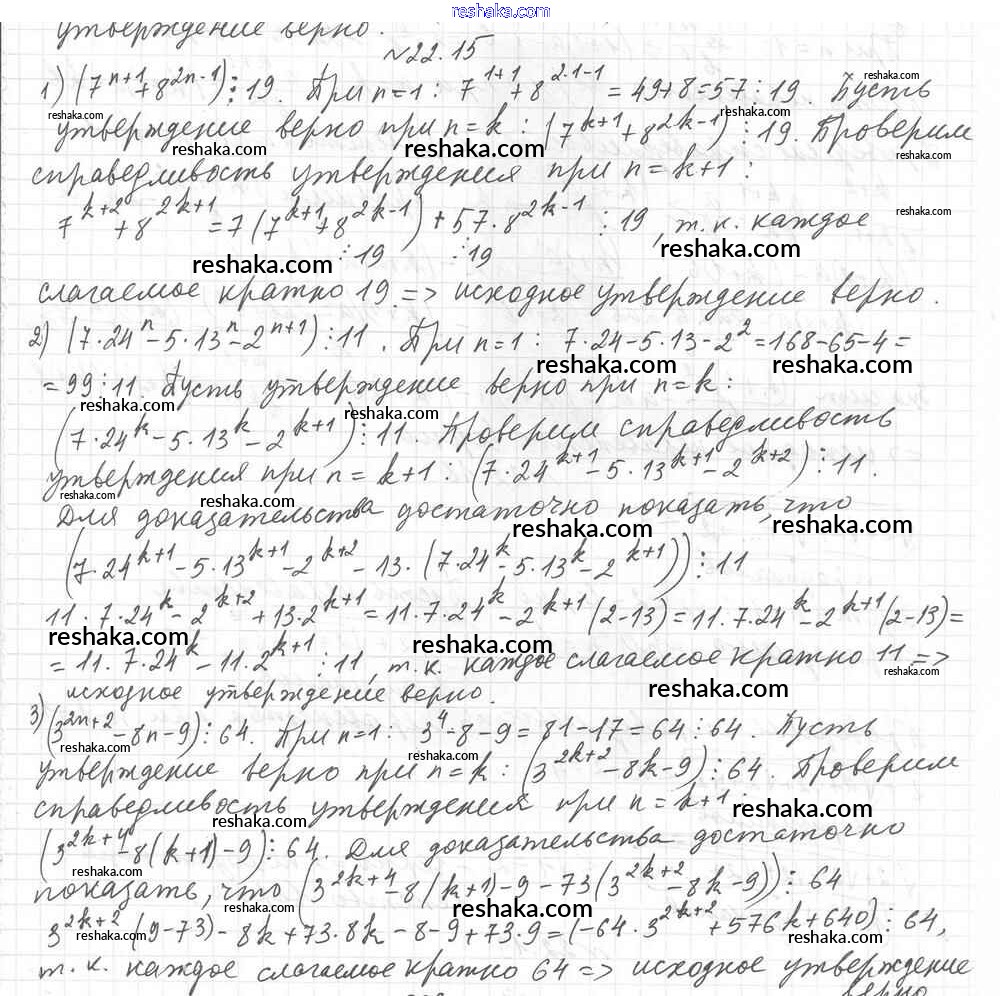 reshaka.com
утверждение верно.
№22.15
1) (7^{n+1}+8^{2n-1})⋮19. При n=1: 7^{1+1}+8^{2·1-1} = 49+8=57⋮19. Пусть
утверждение верно при n=k: (7^{k+1}+8^{2k-1})⋮19. Проверим
справедливость утверждения при n=k+1:
7^{k+2}+8^{2k+1}=7(7^{k+1}+8^{2k-1})+57·8^{2k-1}⋮19, т.к. каждое
⋮19 ⋮19
слагаемое кратно 19 => исходное утверждение верно.
2) (7·24^n-5·13^n-2^{n+1})⋮11. При n=1: 7·24-5·13-2^2=168-65-4=
=99⋮11. Пусть утверждение верно при n=k:
(7·24^k-5·13^k-2^{k+1})⋮11. Проверим справедливость
утверждения при n=k+1: (7·24^{k+1}-5·13^{k+1}-2^{k+2})⋮11.
Для доказательства достаточно показать, что
(7·24^{k+1}-5·13^{k+1}-2^{k+2}-13·(7·24^k-5·13^k-2^{k+1}))⋮11
11·7·24^k-2^{k+2}+13·2^{k+1}=11·7·24^k-2^{k+1}(2-13)=11·7·24^k-2^{k+1}(2-13)=
=11·7·24^k-11·2^{k+1}⋮11, т.к. каждое слагаемое кратно 11 =>
исходное утверждение верно.
3) (3^{2n+2}-8n-9)⋮64. При n=1: 3^4-8-9=81-17=64⋮64. Пусть
утверждение верно при n=k: (3^{2k+2}-8k-9)⋮64. Проверим
справедливость утверждения при n=k+1:
(3^{2k+4}-8(k+1)-9)⋮64. Для доказательства достаточно
показать, что (3^{2k+4}-8(k+1)-9-73(3^{2k+2}-8k-9))⋮64
3^{2k+2}(9-73)-8k+73·8k-8-9+73·9=(-64·3^{2k+2}+576k+640)⋮64,
т.к. каждое слагаемое кратно 64 => исходное утверждение
верно